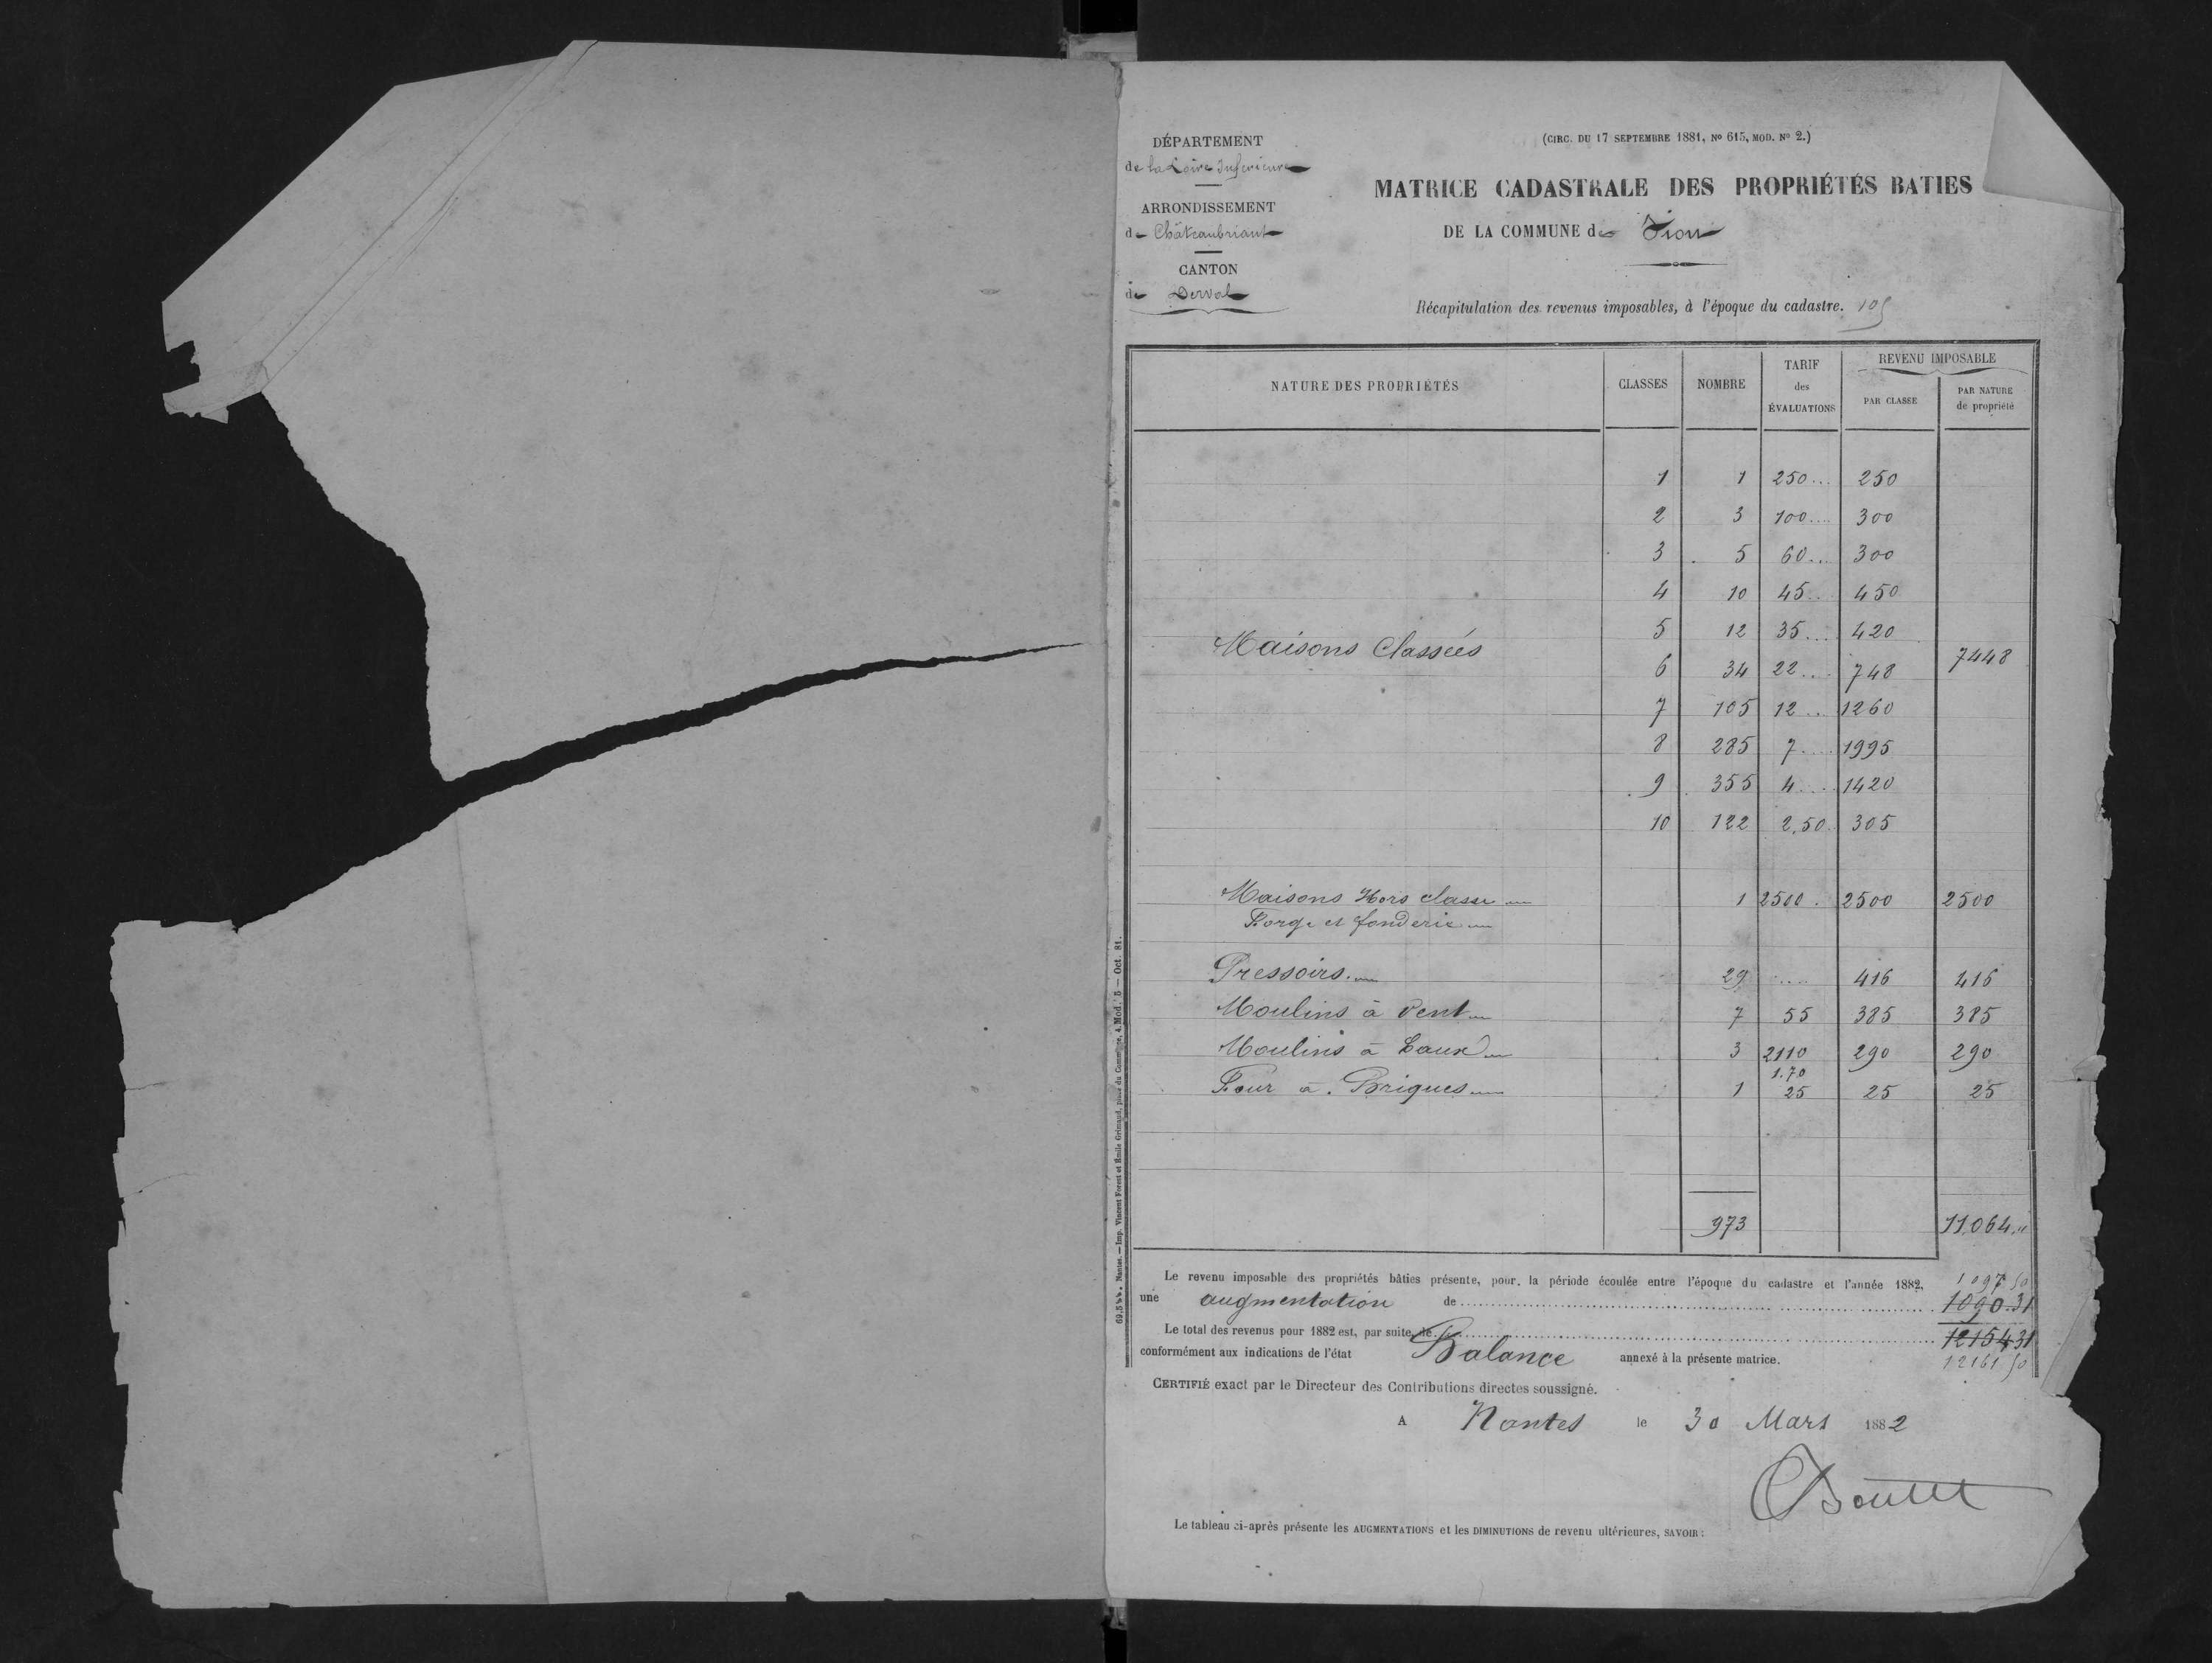 DÉPARTEMENT
de la Loire Inférieure
ARRONDISSEMENT
de Châteaubriant
CANTON
de Derval
(CIRC. DU 17 SEPTEMBRE 1881, No 615, MOD. No 2.)
MATRICE CADASTRALE DES PROPRIÉTÉS BATIES
DE LA COMMUNE de Sion
Récapitulation des revenus imposables, à l'époque du cadastre.
NATURE DES PROPRIÉTÉS CLASSES NOMBRE TARIF des ÉVALUATIONS REVENU IMPOSABLE
PAR CLASSE PAR NATURE de propriété
1 1 250 250
2 3 100 300
3 5 60 300
4 10 45 450
5 12 35 420
Maisons Classées 7448
6 34 22 748
7 105 12 1260
8 285 7 1995
9 355 4 1420
10 122 2,50 305
Maisons Hors classe 1 2500 2500 2500
Forge et fonderie
Pressoirs. 29 416 416
Moulins à Vent 7 55 385 385
Moulins à Eaux 3 2110 290 290
1.70
Four à Briques 1 25 25 25
973 11,064 "
Le revenu imposable des propriétés bâties présente, pour la période écoulée entre l'époque du cadastre et l'année 1882, 1097 50
une augmentation de 1090.31
Le total des revenus pour 1882 est, par suite, de 12154 31
conformément aux indications de l'état Balance annexé à la présente matrice. 12161 50
CERTIFIÉ exact par le Directeur des Contributions directes soussigné.
A Nantes le 30 Mars 1882
Le tableau ci-après présente les AUGMENTATIONS et les DIMINUTIONS de revenu ultérieures, SAVOIR :